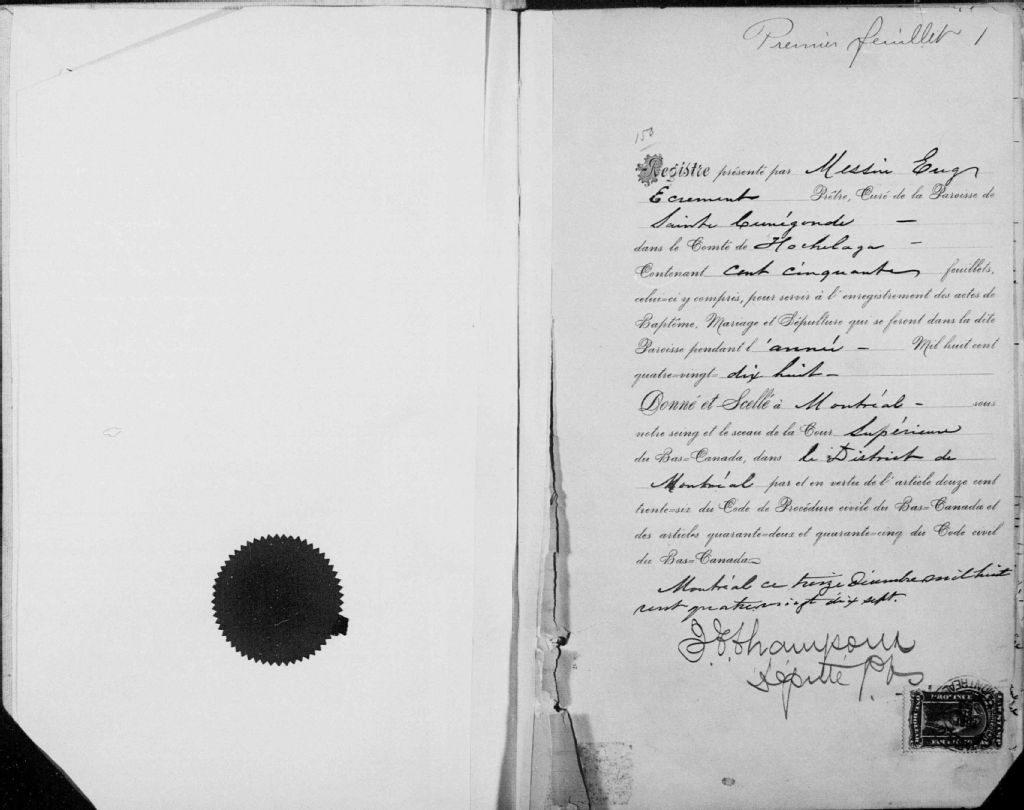 Premier feuillet 1
150
Registre présenté par Messire Eug
Ecrement Prêtre, Curé de la Paroisse de
Sainte Cunégonde —
dans le Comté de Hochelaga —
Contenant cent cinquante feuillets,
celui=ci y compris, pour servir à l'enregistrement des actes de
Baptême, Mariage et Sépulture qui se feront dans la dite
Paroisse pendant l'année — Mil huit cent
quatre=vingt= dix huit —
Donné et Scellé à Montréal — sous
notre seing et le sceau de la Cour Supérieure
du Bas=Canada, dans le District de
Montréal par et en vertu de l'article douze cent
trente=six du Code de Procédure civile du Bas=Canada et
des articles quarante=deux et quarante=cinq du Code civil
du Bas=Canada=
Montréal ce treize décembre mil huit
cent quatre vingt dix sept.
Député P.
MONTREAL
PROVINCE